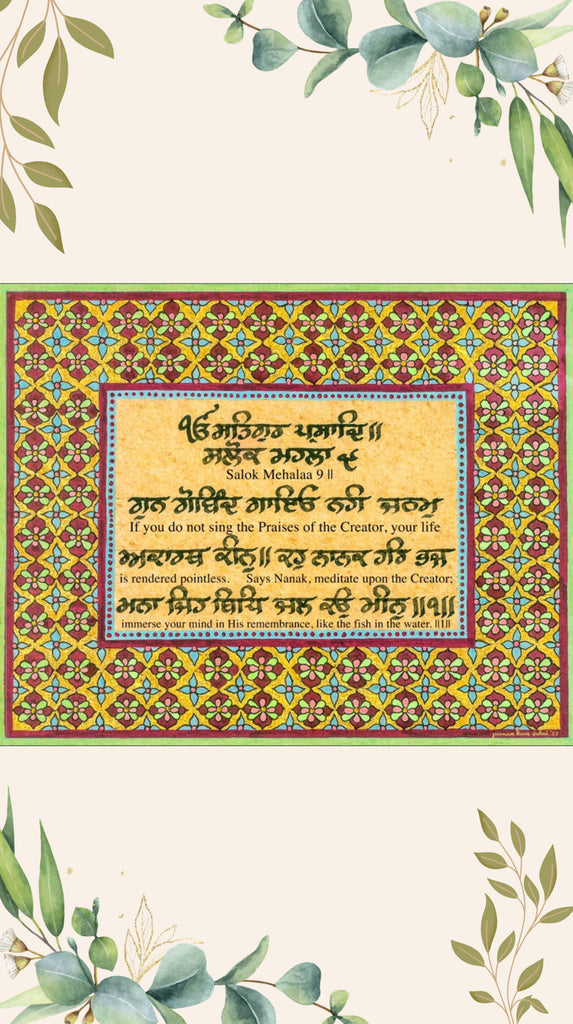 ੴ ਸਤਿਗੁਰ ਪ੍ਰਸਾਦਿ॥
ਸਲੋਕ ਮਹਲਾ ੯
Salok Mehalaa 9 ॥
ਗੁਨ ਗੋਬਿੰਦ ਗਾਇਓ ਨਹੀ ਜਨਮੁ
If you do not sing the Praises of the Creator, your life
ਅਕਾਰਥ ਕੀਨੁ॥ ਕਹੁ ਨਾਨਕ ਹਰਿ ਭਜੁ
is rendered pointless. Says Nanak, meditate upon the Creator;
ਮਨਾ ਜਿਹ ਬਿਧਿ ਜਲ ਕਉ ਮੀਨੁ॥੧॥
immerse your mind in His remembrance, like the fish in the water. ॥1॥